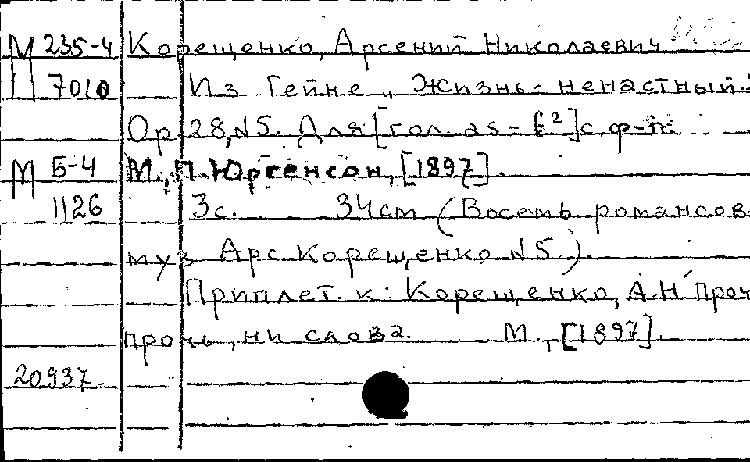 М 235-4 Корещенко, Арсений Николаевич
7010 Из Гейне „Жизнь - ненастный
Ор. 28, N5. Для [гол. as - f²] с ф-п.
М Б-4 М., П. Юргенсон, [1897].
1126 3с. 34см (Восемь романсов
муз Арс. Корещенко N5.)
Приплет. к: Корещенко, А.Н. Прочь
прочь, ни слова. М., [1897].
20937